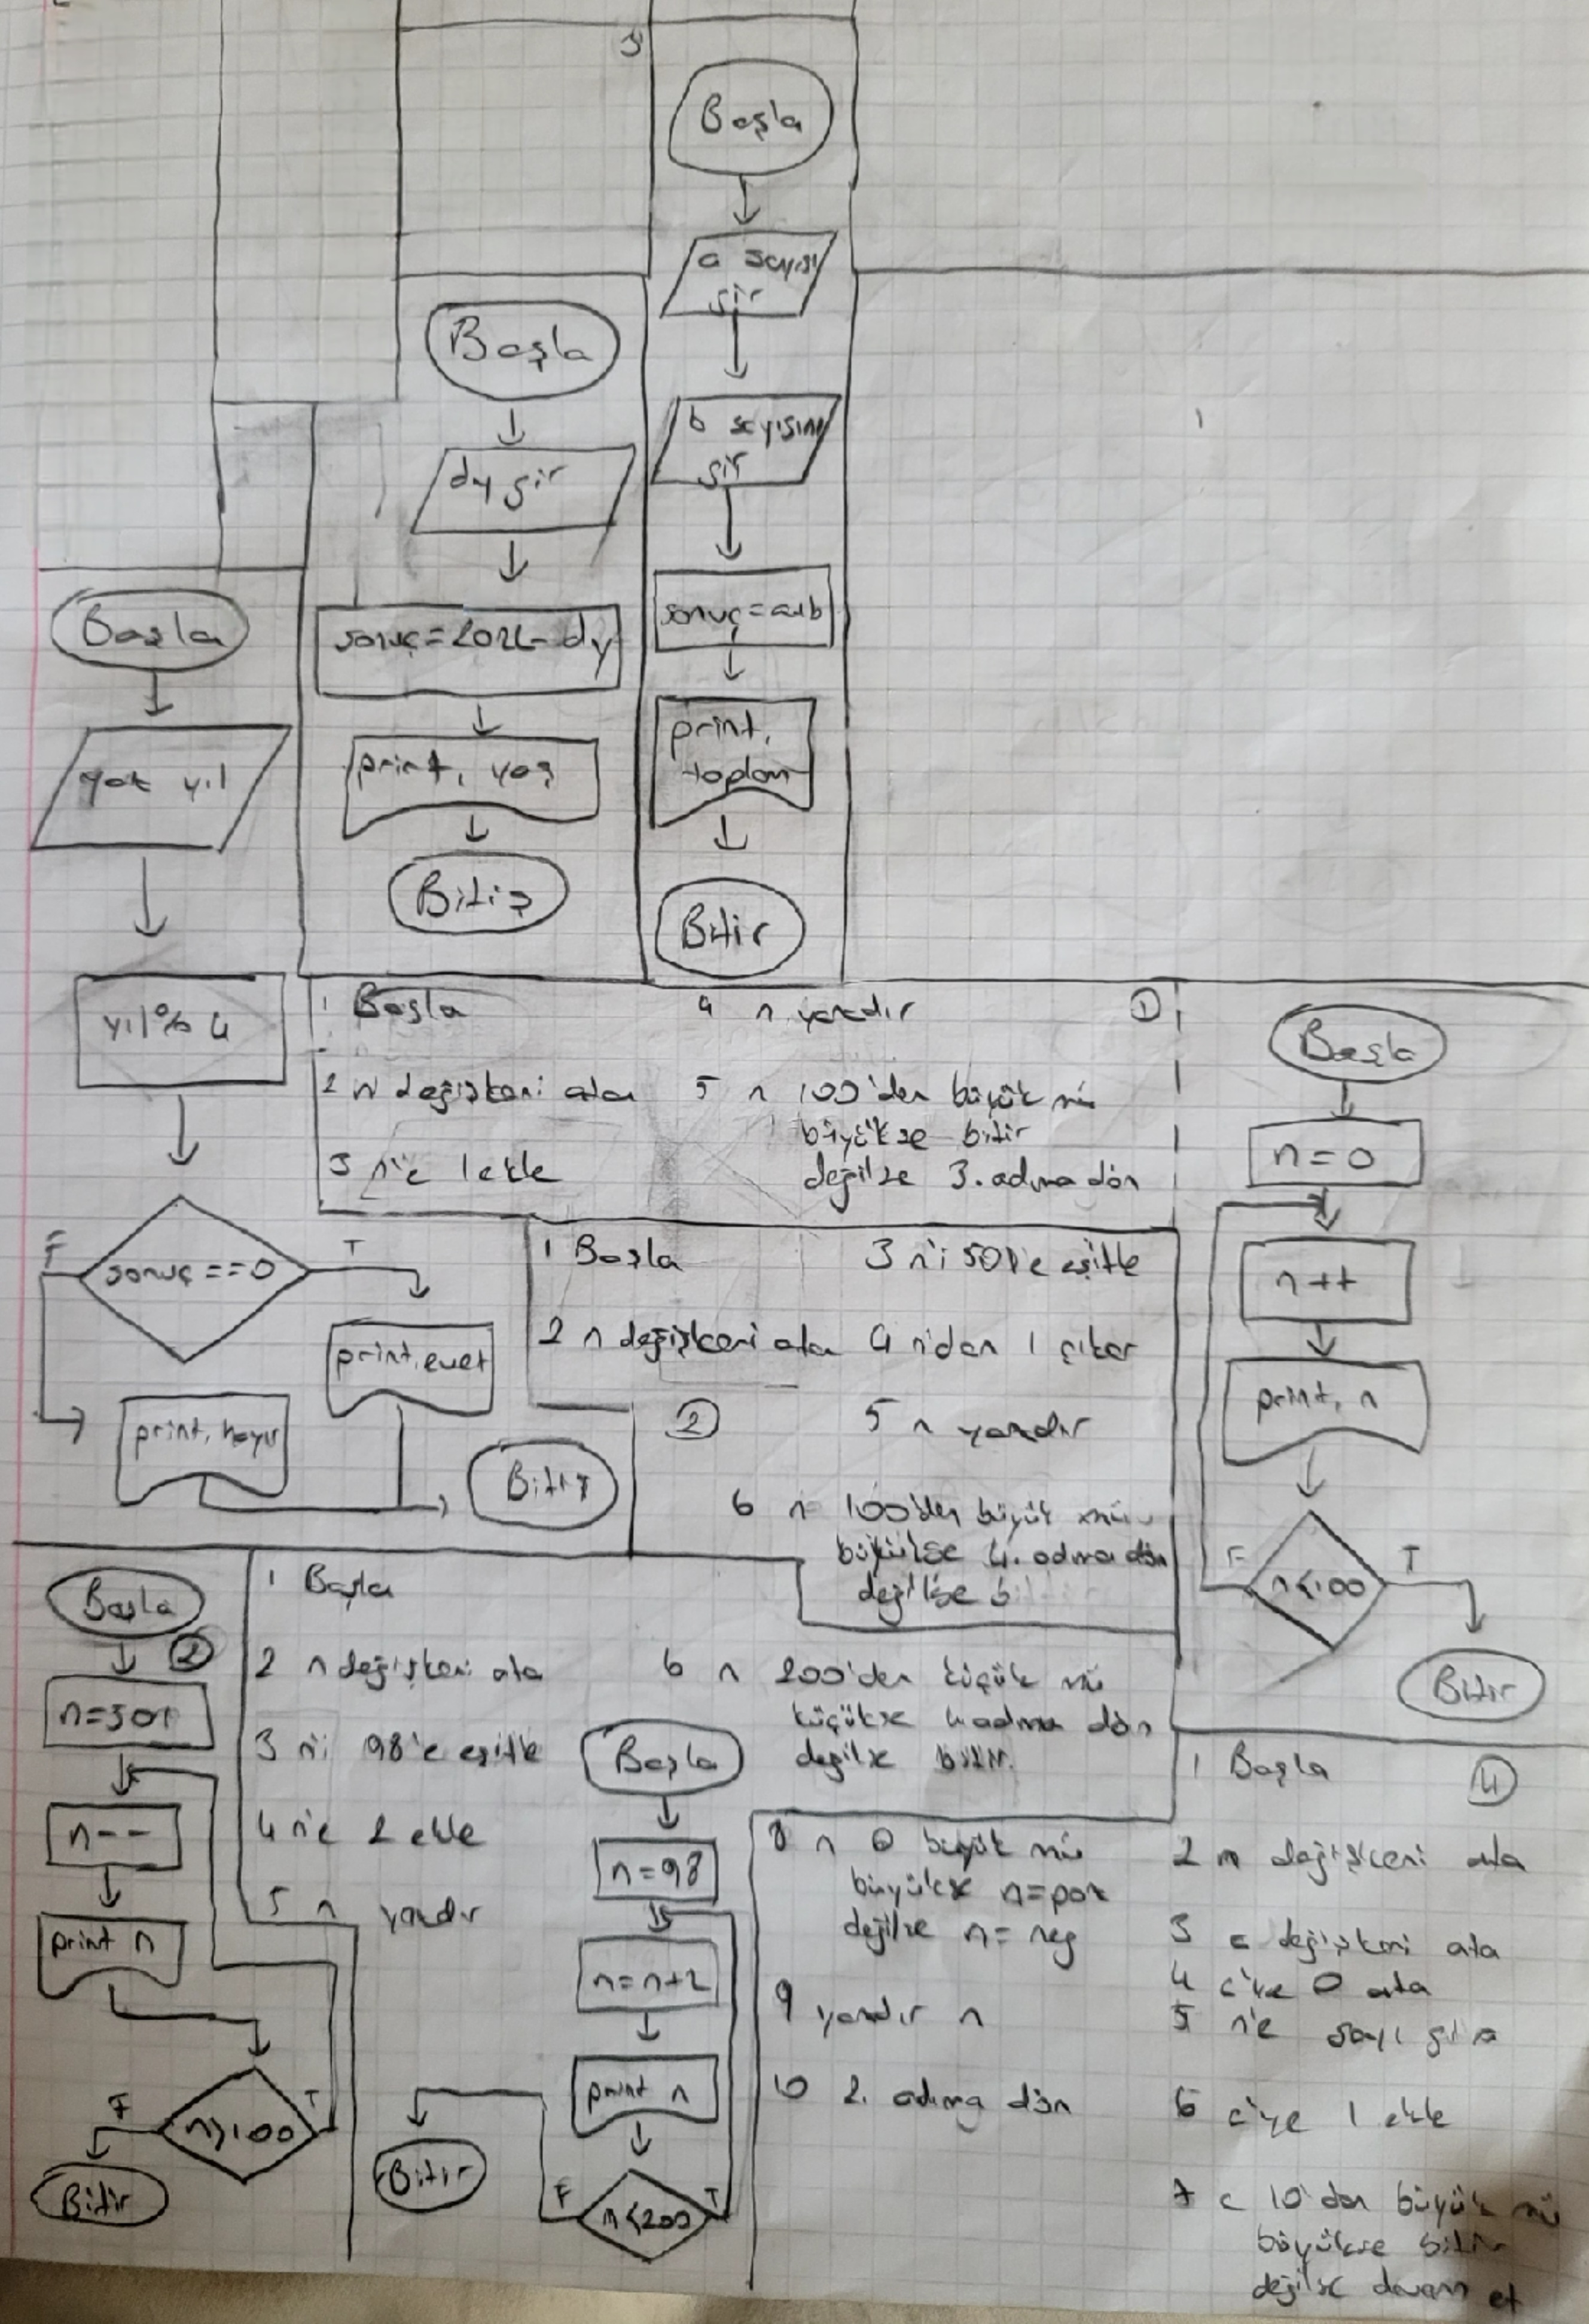 Başla
a sayısı
gir
b sayısını
gir
sonuç=a+b
print,
toplam
Bitir
Başla
dy gir
sonuç=2022-dy
print, yaş
Bitiş
Başla
yıl
yıl%4
sonuç==0
F
T
print,evet
print,hayır
Bitiş
1 Başla
2 n değişkeni ata
3 n'e 1 ekle
4 n yazdır
5 n 100'den büyük mü
büyükse bitir
değilse 3. adıma dön
1
Başla
n=0
n++
print, n
n<100
F
T
Bitir
1 Başla
2 n değişkeni ata
3 n'i 501'e eşitle
4 n'dan 1 çıkar
2
5 n yazdır
6 n 100'den büyük mü
4. adıma dön
değilse
Başla
2
n=501
n--
print n
n>100
F
T
Bitir
1 Başla
2 n değişkeni ata
3 n'i 98'e eşitle
4 n'e 2 ekle
5 n yazdır
6 n 200'den küçük mü
küçükse 4.adıma dön
değilse bitir.
Başla
n=98
n=n+2
print n
n<200
F
T
Bitir
1 Başla
4
2 n değişkeni ata
3 c değişkeni ata
4 c'ye 0 ata
5 n'e sayı gir
6 c'ye 1 ekle
7 c 10'dan büyük mü
büyükse bitir
değilse devam et
8 n 0 büyük mü
büyükse n=poz
değilse n= neg
9 yazdır n
10 2. adıma dön